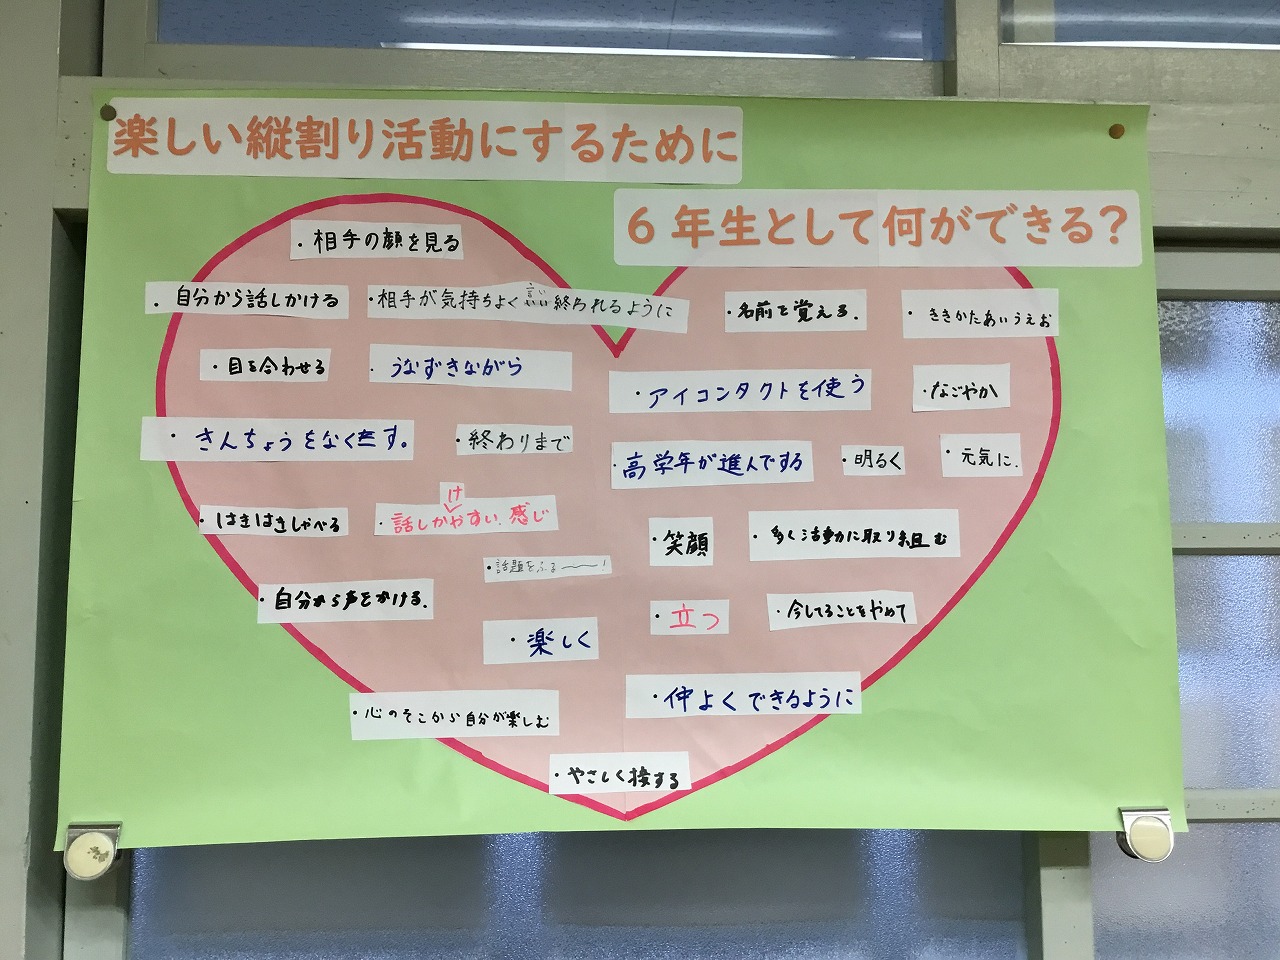 楽しい縦割り活動にするために
6年生として何ができる?
・相手の顔を見る
・自分から話しかける
・相手が気持ちよく言い終われるように
・目を合わせる
・うなずきながら
・きんちょうをなくす。
・終わりまで
・はきはきしゃべる
・話しかけやすい感じ
・話題をふる〜!
・自分から声をかける.
・楽しく
・心のそこから自分が楽しむ
・やさしく接する
・名前を覚える.
・ききかたあいうえお
・アイコンタクトを使う
・なごやか
・高学年が進んでする
・明るく
・元気に.
・笑顔
・多く活動に取り組む
・立つ
・今してることをやめて
・仲よくできるように